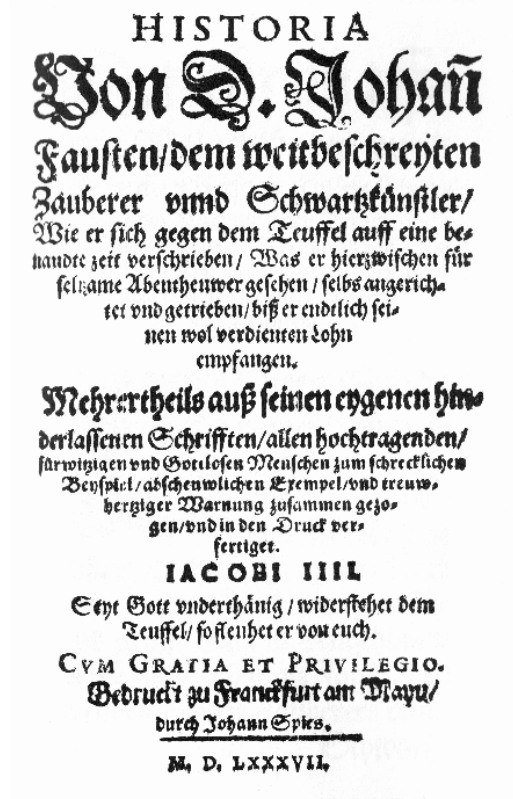 HISTORIA
Von D. Johañ
Fausten/dem weitbeschreyten
Zauberer vnnd Schwartzkünstler/
Wie er sich gegen dem Teuffel auff eine be-
nandte zeit verschrieben/ Was er hierzwischen für
seltzame Abenthenwer gesehen/ selbs angerich-
tet vnd getrieben/ biß er endtlich sei-
nen wol verdienten Lohn
empfangen.
Mehrertheils auß seinen eygenen hin-
derlassenen Schrifften/allen hochtragenden/
fürwitzigen vnd Gottlosen Menschen zum schrecklichen
Beyspiel/abschewlichen Exempel/vnd treuw-
hertziger Warnung zusammen gezo-
gen/vnd in den Druck ver-
fertiget.
IACOBI IIII.
Seyt Gott vnderthänig/ widerstehet dem
Teuffel/ so fleuhet er von euch.
CVM GRATIA ET PRIVILEGIO.
Gedruckt zu Franckfurt am Mayn/
durch Johann Spies.
M. D. LXXXVII.